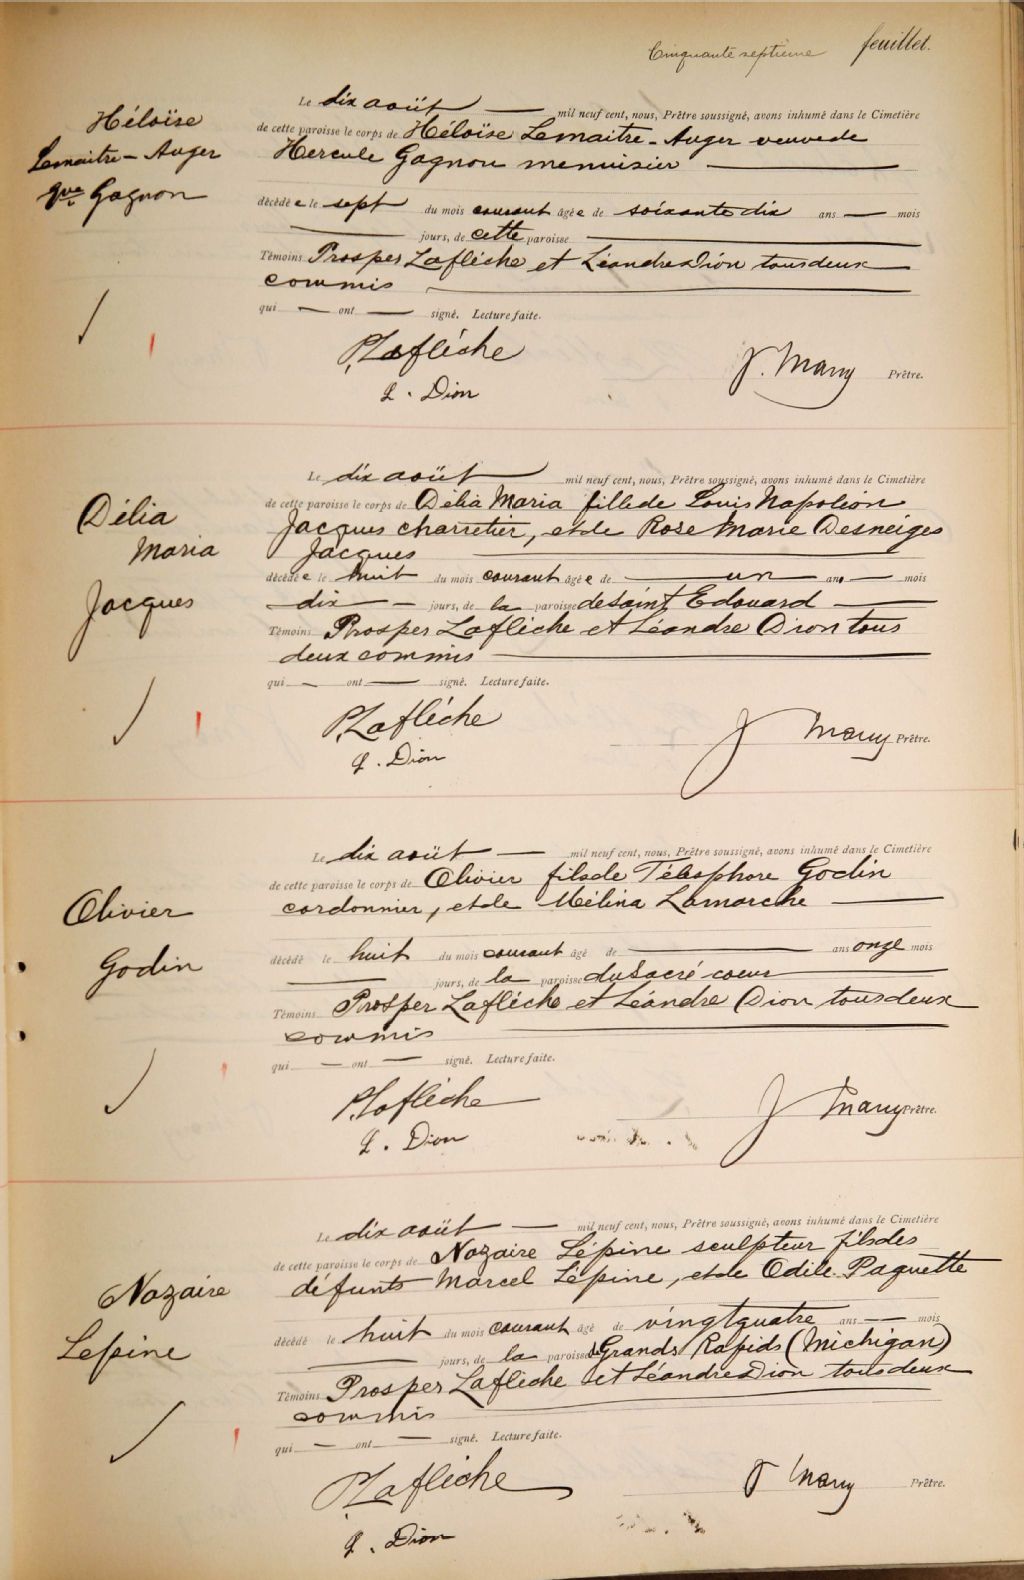 Cinquante septième feuillet.
Héloïse
Lemaitre - Auger
Vve Gagnon
Le dix août — mil neuf cent, nous, Prêtre soussigné, avons inhumé dans le Cimetière
de cette paroisse le corps de Héloïse Lemaitre - Auger veuve de
Hercule Gagnon menuisier —
décédée le sept du mois courant âgée de soixante dix ans — mois
— jours, de cette paroisse —
Témoins Prosper Laflèche et Léandre Dion tous deux
commis —
qui — ont — signé. Lecture faite.
P. Laflèche
L. Dion
J. Many Prêtre.
Délia
Maria
Jacques
Le dix août — mil neuf cent, nous, Prêtre soussigné, avons inhumé dans le Cimetière
de cette paroisse le corps de Délia Maria fille de Louis Napoléon
Jacques charretier, et de Rose Marie Desneiges
Jacques —
décédée le huit du mois courant âgée de — un — an — mois
— dix — jours, de la paroisse de Saint Edouard —
Témoins Prosper Laflèche et Léandre Dion tous
deux commis —
qui — ont — signé. Lecture faite.
P. Laflèche
L. Dion
J Many Prêtre.
Olivier
Godin
Le dix août — mil neuf cent, nous, Prêtre soussigné, avons inhumé dans le Cimetière
de cette paroisse le corps de Olivier fils de Télesphore Godin
cordonnier, et de Mélina Lamarche —
décédé le huit du mois courant âgé de — ans onze mois
— jours, de la paroisse du Sacré coeur —
Témoins Prosper Laflèche et Léandre Dion tous deux
commis —
qui — ont — signé. Lecture faite.
P. Laflèche
L. Dion
J Many Prêtre.
Nazaire
Lepine
Le dix août — mil neuf cent, nous, Prêtre soussigné, avons inhumé dans le Cimetière
de cette paroisse le corps de Nazaire Lépine sculpteur fils des
défunts Marcel Lépine, et de Odile Paquette
décédé le huit du mois courant âgé de vingt quatre ans — mois
— jours, de la paroisse de Grands Rapids (Michigan)
Témoins Prosper Laflèche et Léandre Dion tous deux
commis —
qui — ont — signé. Lecture faite.
P. Laflèche
L. Dion
J Many Prêtre.